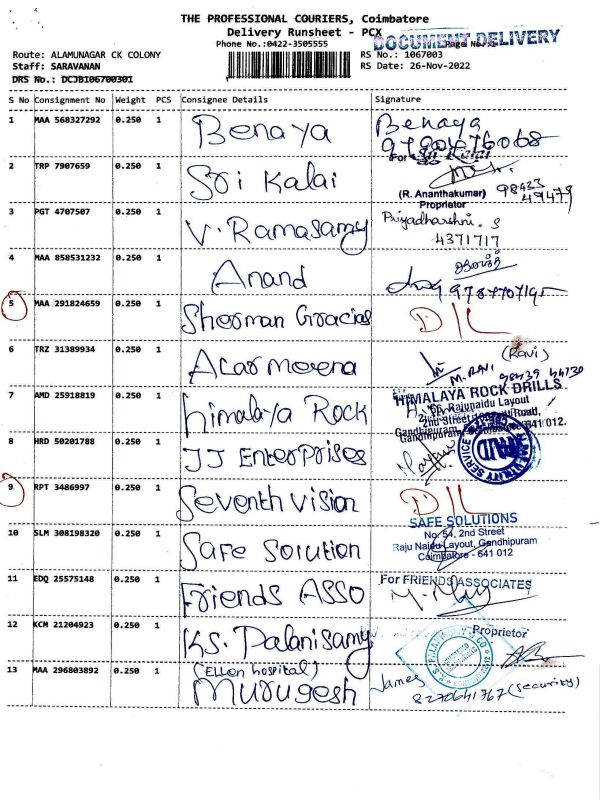 THE PROFESSIONAL COURIERS, Coimbatore
Delivery Runsheet - PCX
DOCUMENT DELIVERY
Phone No.:0422-3505555
Page No.:1
Route: ALAMUNAGAR CK COLONY
RS No.: 1067003
Staff: SARAVANAN
RS Date: 26-Nov-2022
DRS No.: DCJB106700301
S No Consignment No Weight PCS Consignee Details Signature
1 MAA 568327292 0.250 1 Benaya Benaya
2 TRP 7907659 0.250 1 Sri Kalai For Sri Kalai
(R. Ananthakumar) 98423 49479
Proprietor
3 PGT 4707507 0.250 1 V. Ramasamy Priyadharshni. S
4371717
4 MAA 858531232 0.250 1 Anand
5 MAA 291824659 0.250 1 Sherman Gracias D/L
6 TRZ 31389934 0.250 1 Acar morena (Ravi)
M. RAVI
7 AMD 25918819 0.250 1 Himalaya Rock HIMALAYA ROCK DRILLS
2nd Street, Rajunaidu Layout
Gandhipuram, Coimbatore 641 012.
8 HRD 50201788 0.250 1 JJ Enterprises
9 RPT 3486997 0.250 1 Seventh vision D/L
10 SLM 308198320 0.250 1 Safe Solution SAFE SOLUTIONS
No. 54, 2nd Street
Raju Naidu Layout, Gandhipuram
Coimbatore - 641 012
11 EDQ 25575148 0.250 1 Friends ASSO For FRIENDS ASSOCIATES
12 KCM 21204923 0.250 1 K.S. Palanisamy Proprietor
13 MAA 296803892 0.250 1 (Ellen hospital)
Murugesh James
8270641767 (security)